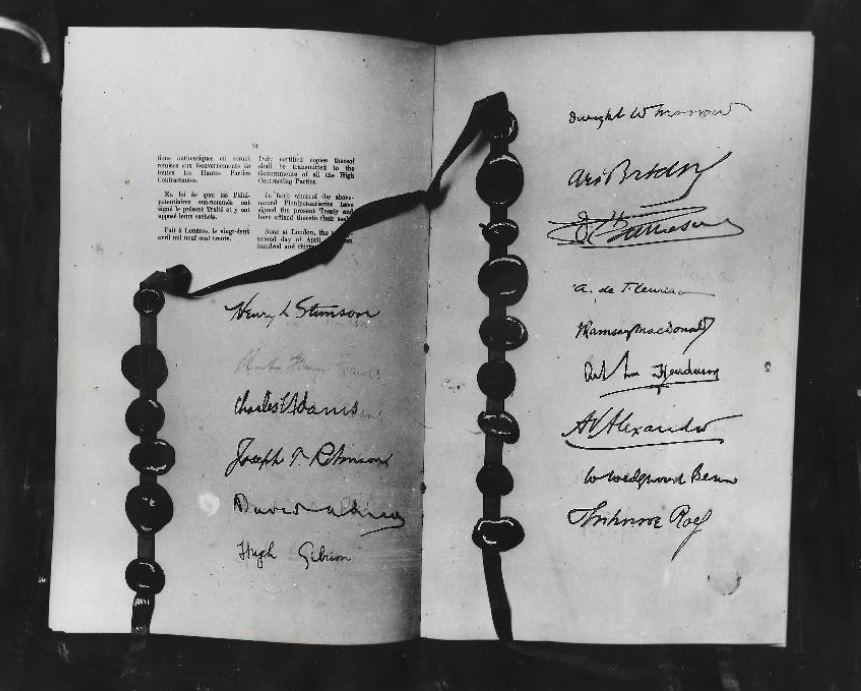 tions authentiques en seront
remises aux Gouvernements de
toutes les Hautes Parties
Contractantes.
En foi de quoi les Pléni-
potentiaires sus-nommés ont
signé le présent Traité et y ont
apposé leurs cachets.
Fait à Londres, le vingt-deux
avril mil neuf cent trente.
Duly certified copies thereof
shall be transmitted to the
Governments of all the High
Contracting Parties.
In faith whereof the above-
named Plenipotentiaries have
signed the present Treaty and
have affixed thereto their seals
Done at London, the
second day of April,
hundred and
Henry L Stimson
Charles F Adams
Joseph T. Robinson
David
Hugh Gibson
Dwight W Morrow
Ari Briand
J
A. de Fleuriau
J Ramsay MacDonald
Arthur Henderson
AV Alexander
W Wedgwood Benn
Philip